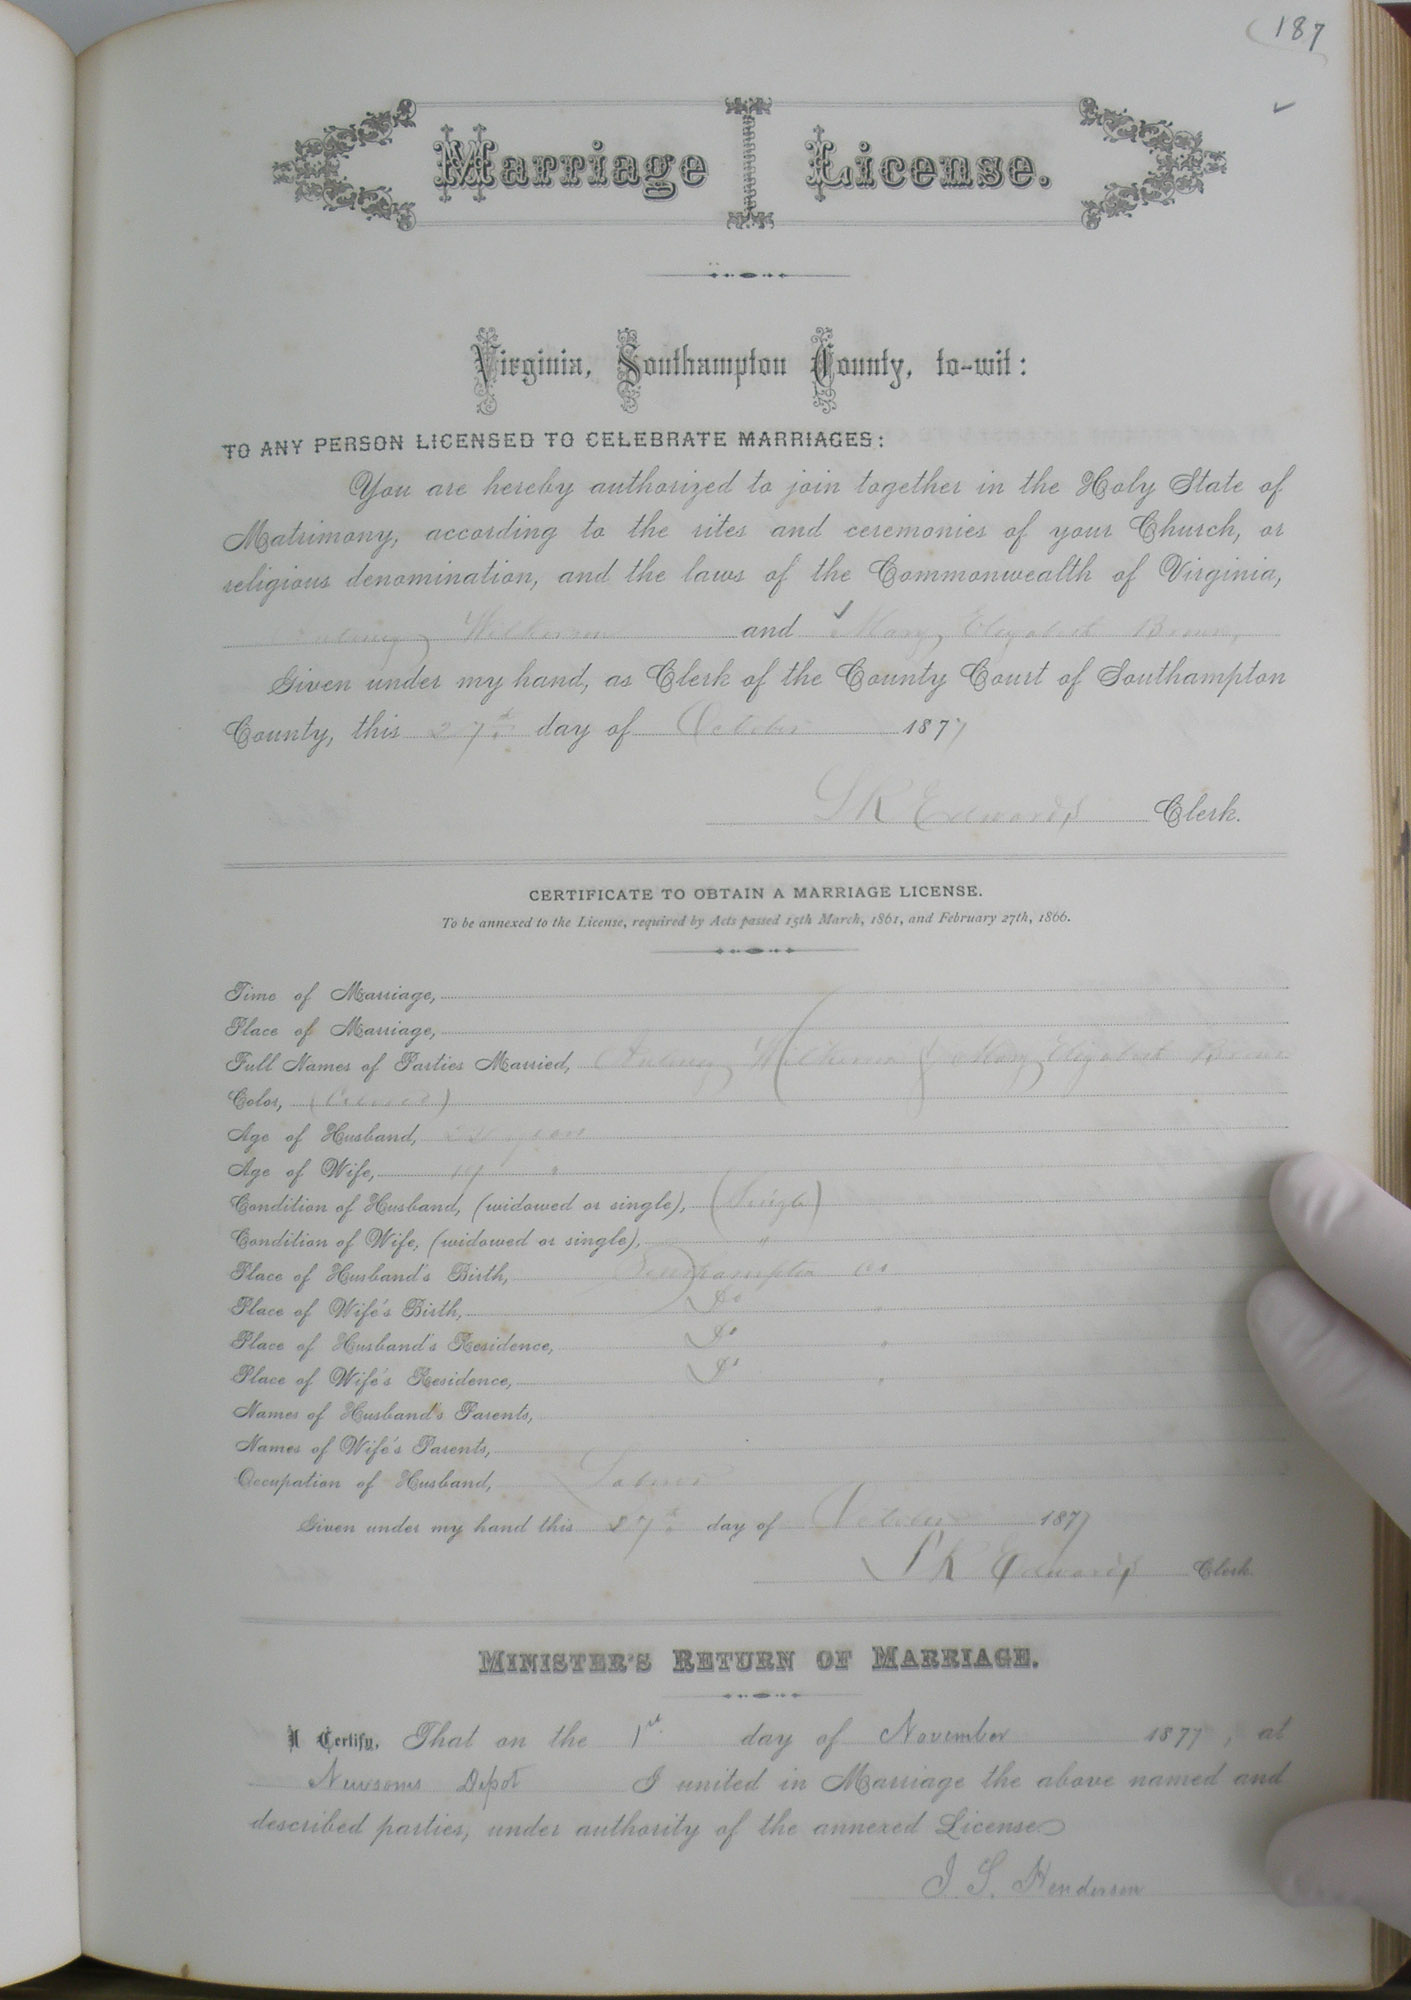 187
Marriage License.
Virginia, Southampton County, to-wit:
TO ANY PERSON LICENSED TO CELEBRATE MARRIAGES:
You are hereby authorized to join together in the Holy State of
Matrimony, according to the rites and ceremonies of your Church, or
religious denomination, and the laws of the Commonwealth of Virginia,
Wilkinson and Mary Elizabeth
Given under my hand, as Clerk of the County Court of Southampton
County, this 27th day of October 1877
S K Edwards Clerk.
CERTIFICATE TO OBTAIN A MARRIAGE LICENSE.
To be annexed to the License, required by Acts passed 15th March, 1861, and February 27th, 1866.
Time of Marriage,
Place of Marriage,
Full Names of Parties Married, Wilkinson & Mary Elizabeth
Color, (Colored)
Age of Husband, years
Age of Wife, 19 "
Condition of Husband, (widowed or single), (Single)
Condition of Wife, (widowed or single), "
Place of Husband's Birth, Southampton Co
Place of Wife's Birth, Do "
Place of Husband's Residence, Do "
Place of Wife's Residence, Do "
Names of Husband's Parents,
Names of Wife's Parents,
Occupation of Husband, Laborer
Given under my hand this 27th day of October 1877
S K Edwards Clerk.
MINISTER'S RETURN OF MARRIAGE.
I Certify, That on the 1st day of November 1877, at
Newsoms Depot I united in Marriage the above named and
described parties, under authority of the annexed License.
J. S. Henderson